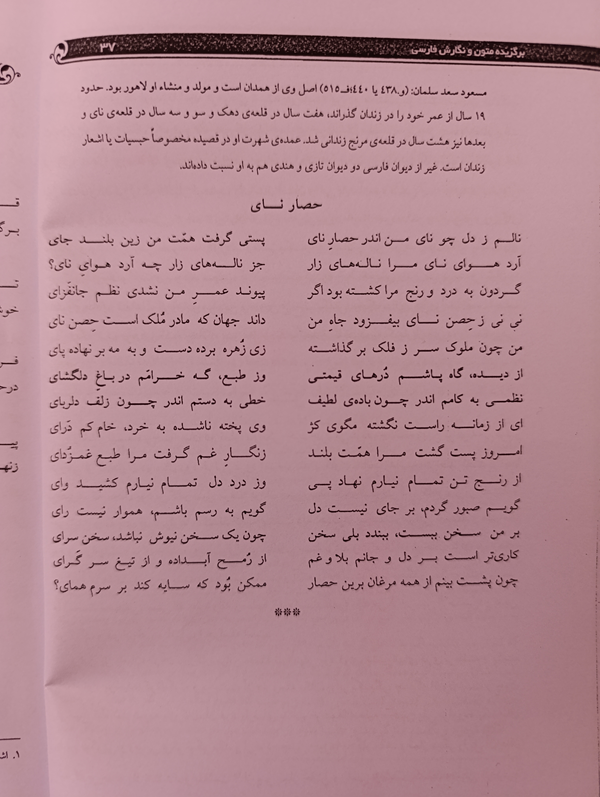 برگزیده‌ی متون و نگارش فارسی
۳۷
مسعود سعد سلمان: (و.۴۳۸ یا ۴۴۰؛ف۵۱۵) اصل وی از همدان است و مولد و منشاء او لاهور بود. حدود
۱۹ سال از عمر خود را در زندان گذراند، هفت سال در قلعه‌ی دهک و سو و سه سال در قلعه‌ی نای و
بعدها نیز هشت سال در قلعه‌ی مرنج زندانی شد. عمده‌ی شهرت او در قصیده مخصوصاً حبسیات یا اشعار
زندان است. غیر از دیوان فارسی دو دیوان تازی و هندی هم به او نسبت داده‌اند.
حصار نـــای
نالم ز دل چو نای من اندر حصارِ نای پستی گرفت همّت من زین بلند جای
آرد هوای نای مرا ناله‌های زار جز ناله‌های زار چه آرد هوایِ نای؟
گردون به درد و رنج مرا کشته بود اگر پیوند عمرِ من نشدی نظم جانفزای
نی نی ز حِصن نای بیفزود جاهِ من داند جهان که مادر مُلک است حِصن نای
من چون ملوک سر ز فلک بر گذاشته زی زُهره برده دست و به مه بر نهاده پای
از دیده، گاه پاشم دُرهای قیمتی وز طبع، گه خرامم در باغِ دلگشای
نظمی به کامم اندر چون باده‌ی لطیف خطی به دستم اندر چون زلف دلربای
ای از زمانه راست نگشته مگوی کژ وی پخته ناشده به خرد، خام کم درای
امروز پست گشت مرا همّت بلند زنگارِ غم گرفت مرا طبع غمزُدای
از رنجِ تن تمام نیارم نهاد پی وز درد دل تمام نیارم کشید وای
گویم صبور گردم، بر جای نیست دل گویم به رسم باشم، هموار نیست رای
بر من سخن ببست، ببندد بلی سخن چون یک سخن نیوش نباشد، سخن سرای
کاری‌تر است بر دل و جانم بلا و غم از رُمح آبداده و از تیغ سر گرای
چون پشت بینم از همه مرغان برین حصار ممکن بُود که سایه کند بر سرم همای؟
***